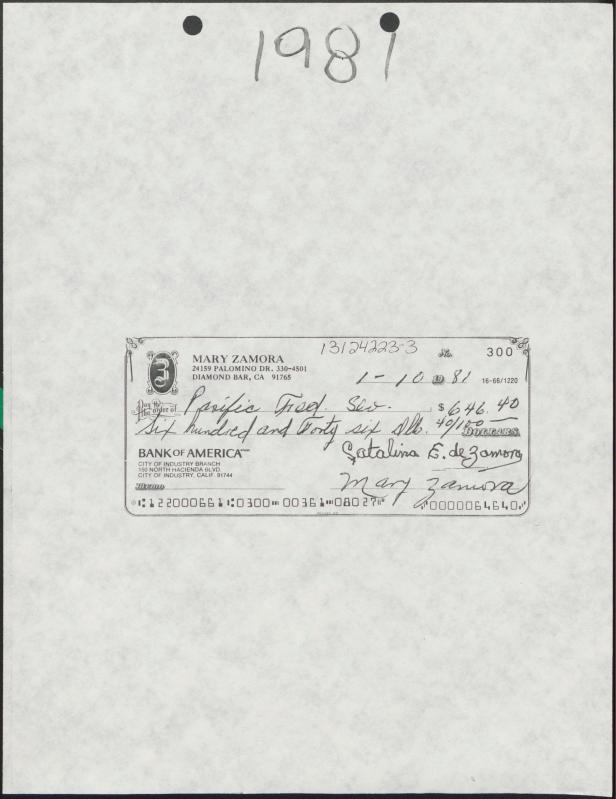 1981
13124223-3
No. 300
MARY ZAMORA
24159 PALOMINO DR. 330-4501
DIAMOND BAR, CA 91765
1-10 19 81 16-66/1220
Pay to the order of Pacific Fred. Ser. $ 646.40
Six hundred and Forty six Dlls. 40/100 DOLLARS
BANK OF AMERICA
CITY OF INDUSTRY BRANCH
150 NORTH HACIENDA BLVD.
CITY OF INDUSTRY, CALIF. 91744
Catalina E. de Zamora
Memo Mary Zamora
⑆122000661⑆0300⑈00361⑈08027⑈ ⑈0000064640⑈